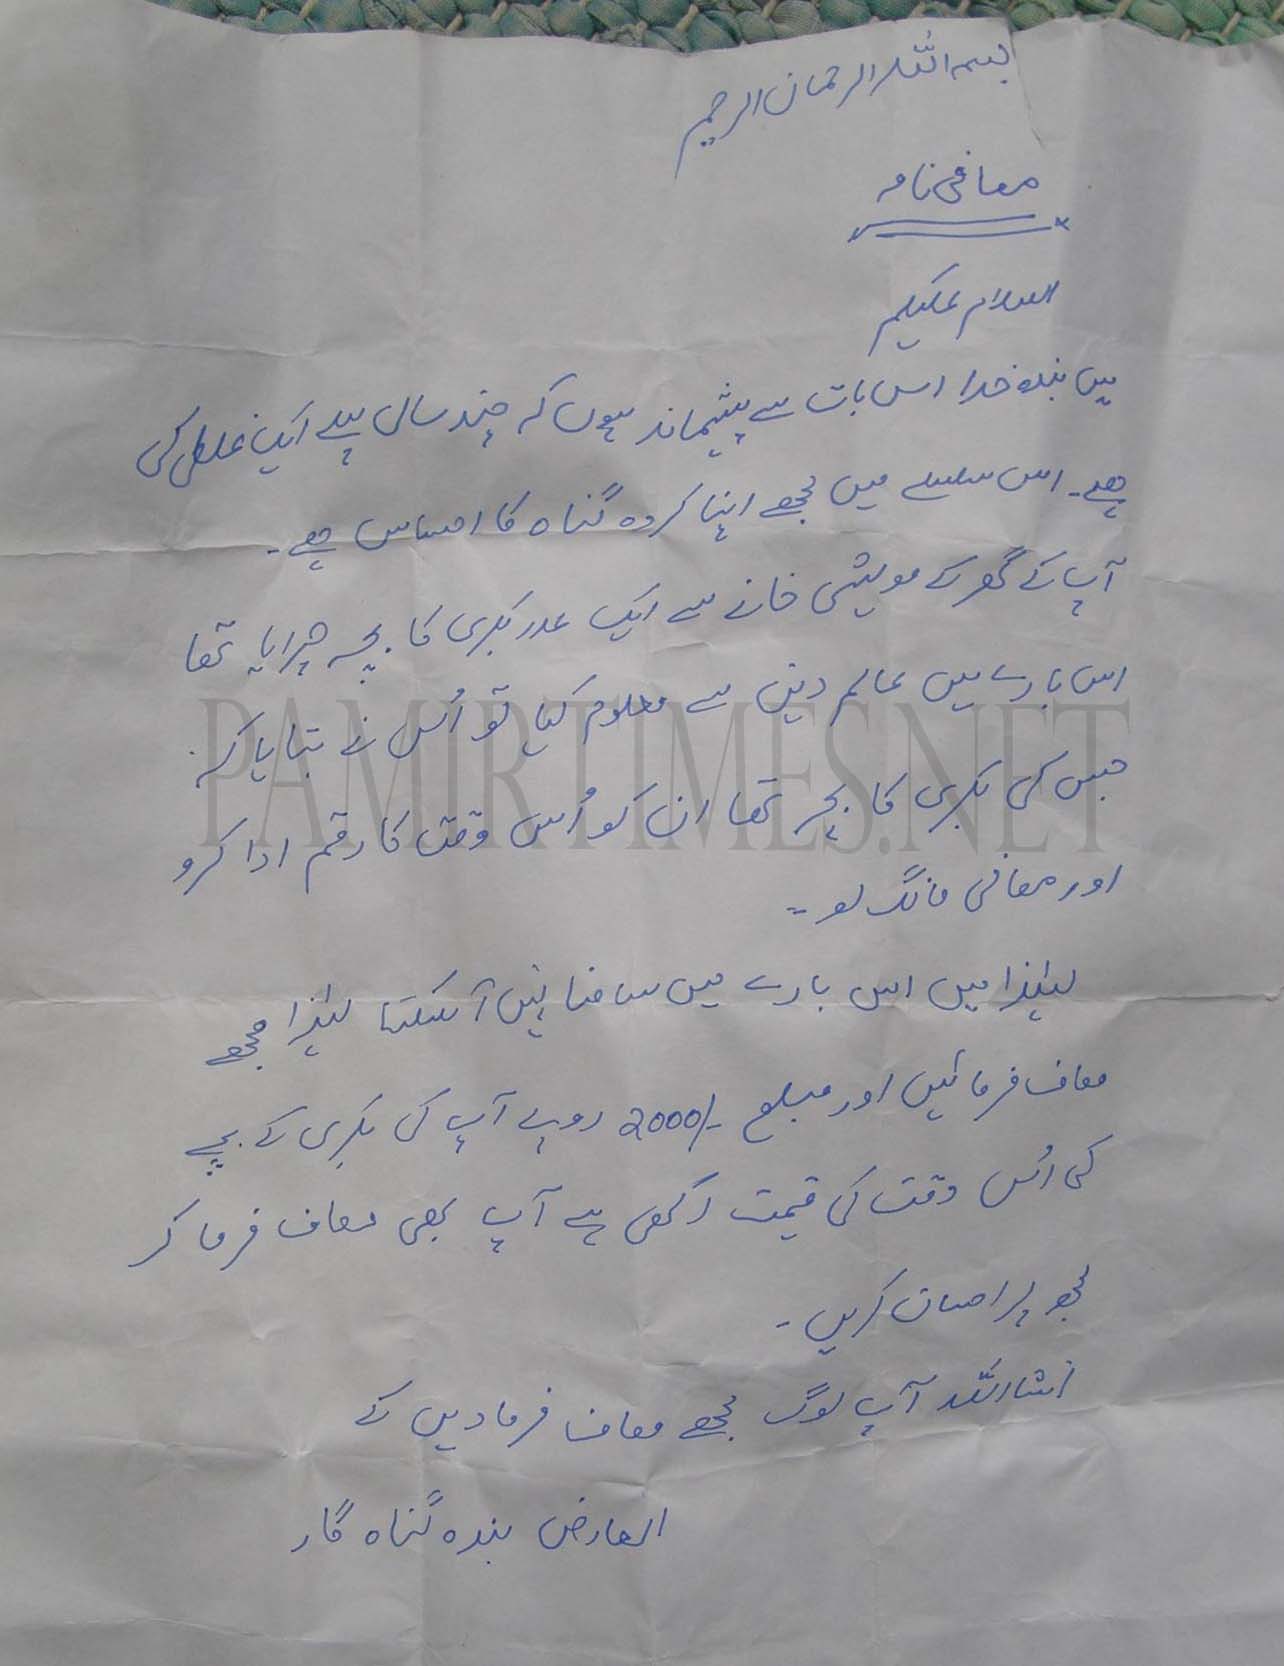 بسم اللہ الرحمان الرحیم
معافی نامہ
السلام علیکم
میں بندہ خدا اس بات سے پشیماند ہوں کہ چند سال پہلے ایک غلطی کی
ہے۔ اس سلسلے میں مجھے اپنا کردہ گناہ کا احساس ہے۔
آپ کے گھر کے مویشی خانے سے ایک عدد بکری کا بچہ چرایا تھا
اس بارے میں عالم دین سے معلوم کیا تو اُس نے بتایا کہ
جس کی بکری کا بچہ تھا ان کو اُس وقت کا رقم ادا کرو
اور معافی مانگ لو۔
لہٰذا میں اس بارے میں سامنا نہیں آسکتا لہٰذا مجھے
معاف فرمائیں اور مبلغ 2000/- روپے آپ کی بکری کے بچے
کی اُس وقت کی قیمت رکھی ہے آپ بھی معاف فرما کر
مجھ پر احسان کریں۔
انشاءاللہ آپ لوگ مجھے معاف فرما دیں گے
العارض بندہ گناہ گار
PAMIRTIMES.NET